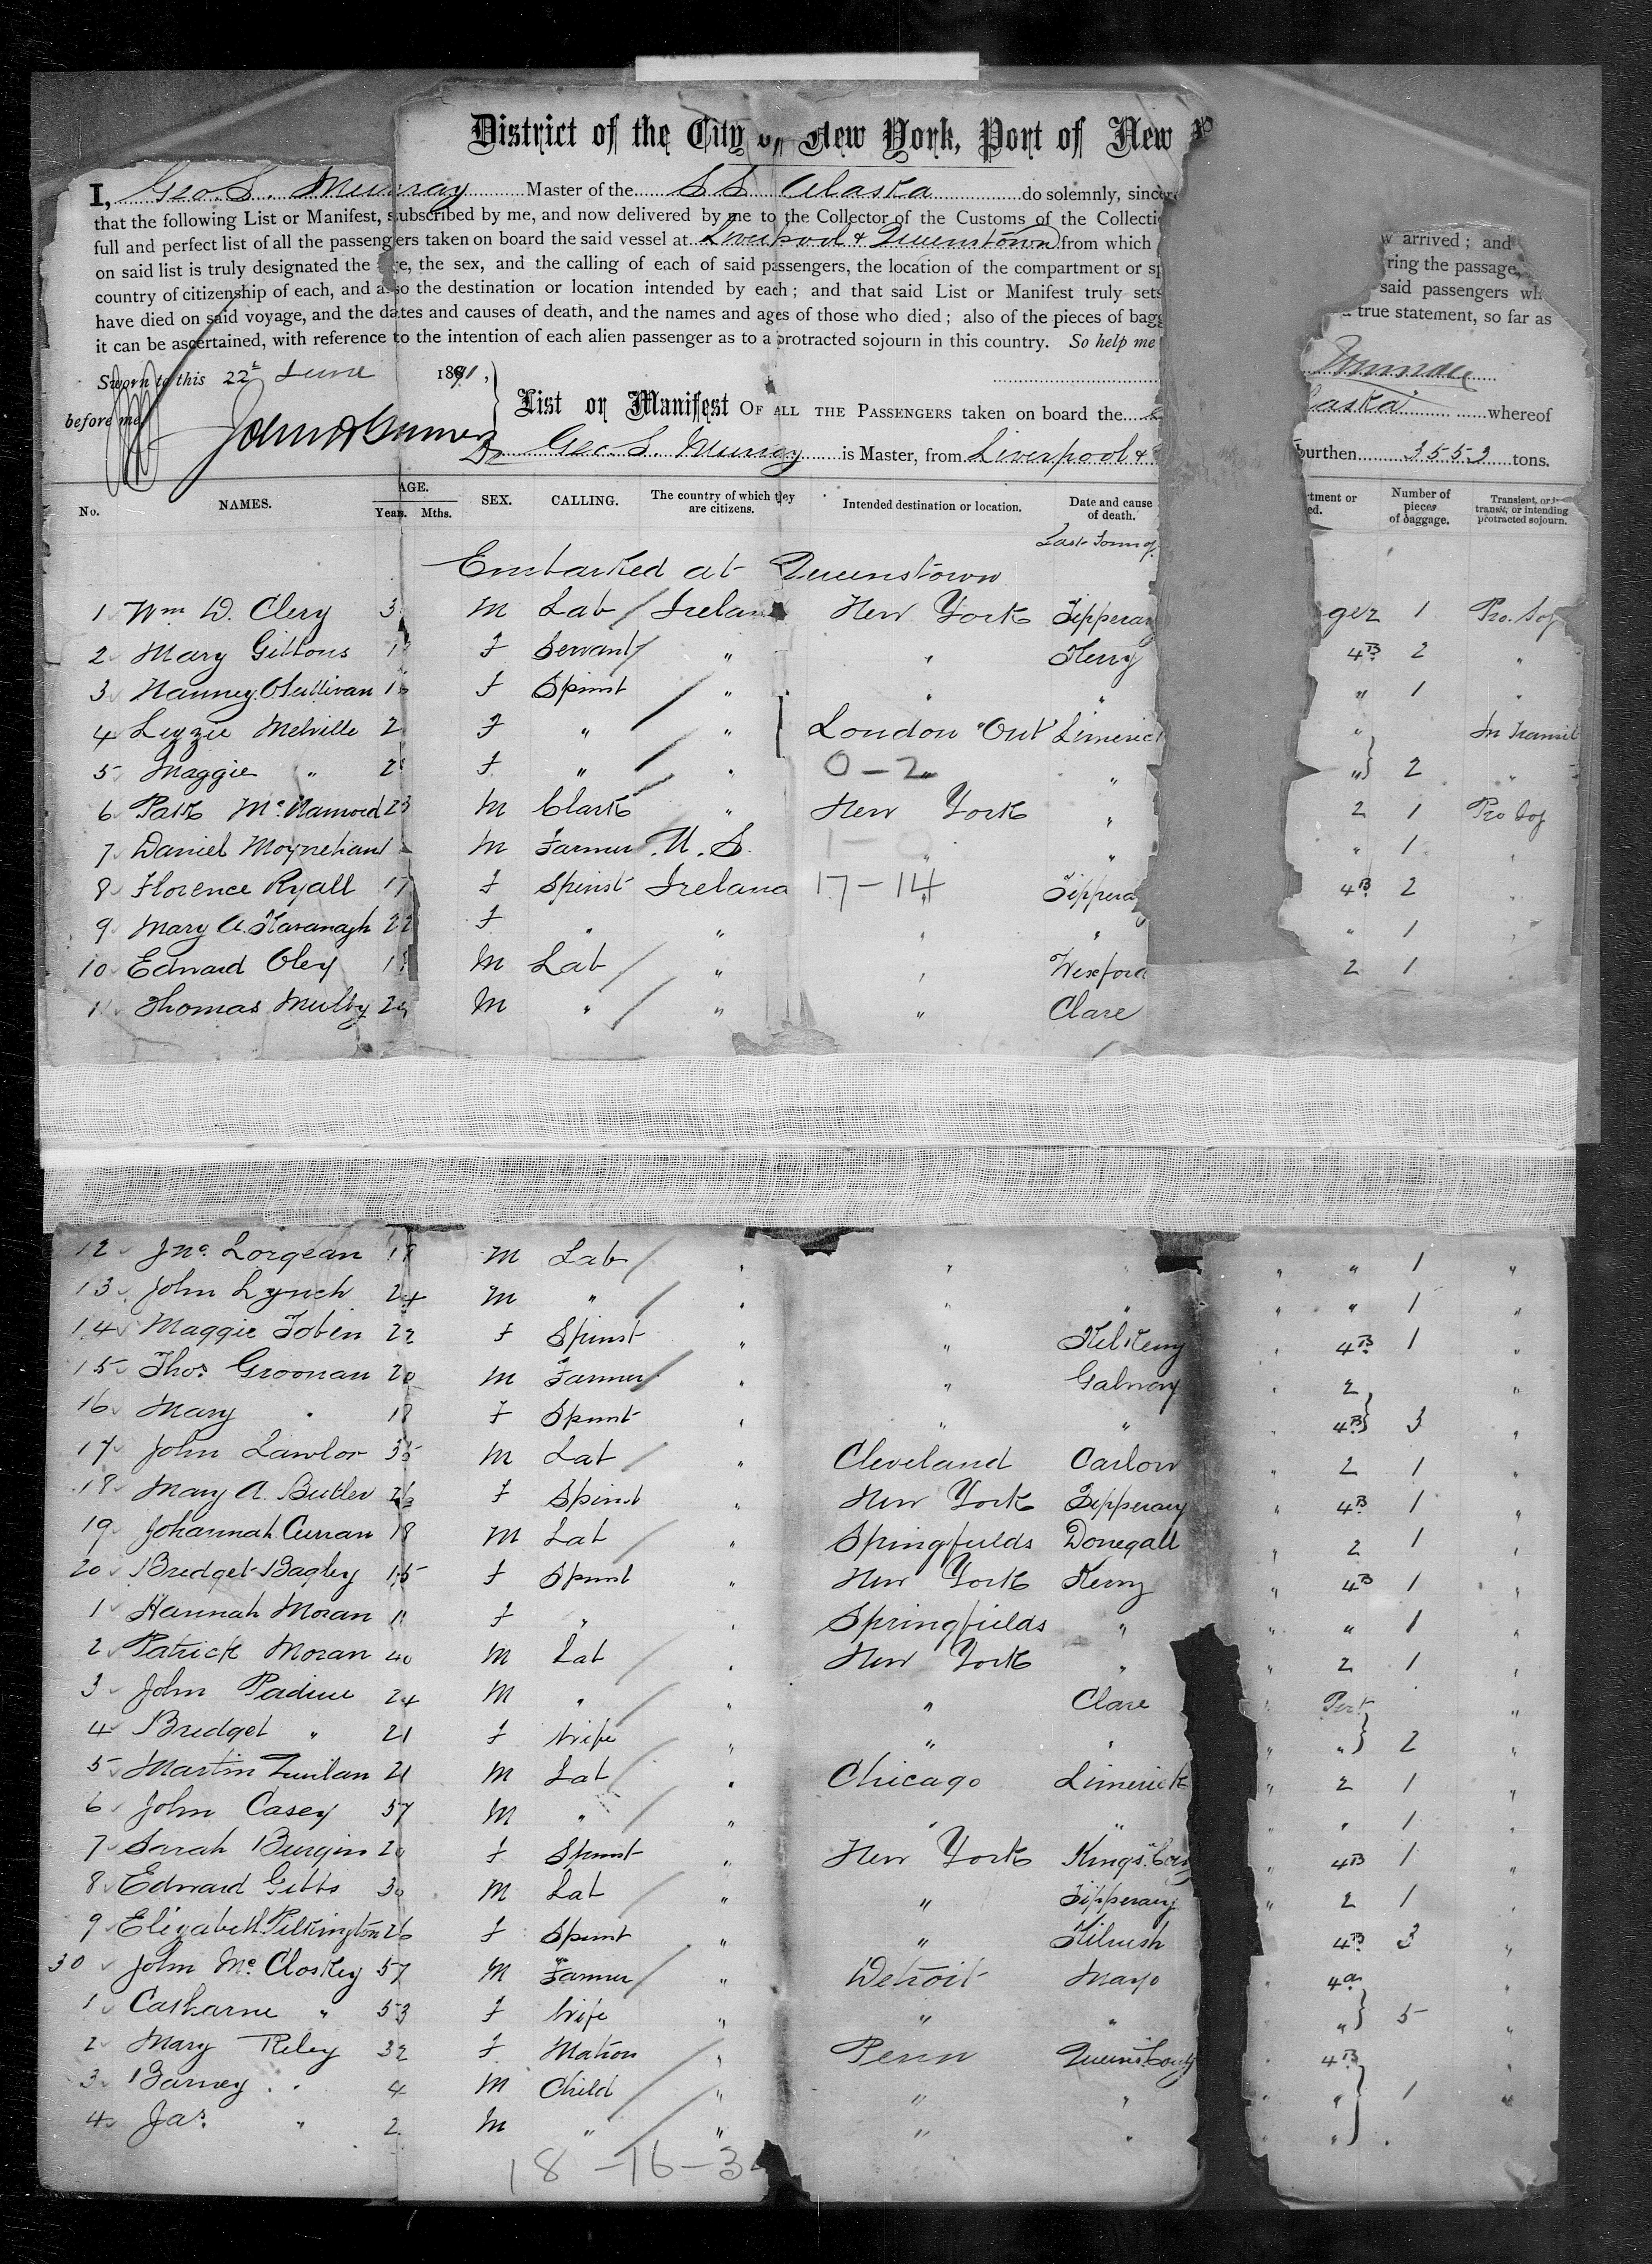 District of the City of New York, Port of New Y
I, Geo. S. Murray Master of the SS Alaska do solemnly, since
that the following List or Manifest, subscribed by me, and now delivered by me to the Collector of the Customs of the Collecti
full and perfect list of all the passengers taken on board the said vessel at Liverpool & Queenstown from which w arrived; and
on said list is truly designated the age, the sex, and the calling of each of said passengers, the location of the compartment or sp ring the passage,
country of citizenship of each, and also the destination or location intended by each; and that said List or Manifest truly sets said passengers wh
have died on said voyage, and the dates and causes of death, and the names and ages of those who died; also of the pieces of bagg true statement, so far as
it can be ascertained, with reference to the intention of each alien passenger as to a protracted sojourn in this country. So help me
Sworn to this 22d June 1891, Murray
before me
List or Manifest OF ALL THE PASSENGERS taken on board the laska whereof
Geo. S. Murray is Master, from Liverpool & burthen 3552 tons.
No. NAMES. AGE. Years. Mths. SEX. CALLING. The country of which they are citizens. Intended destination or location. Date and cause of death. rtment or ed. Number of pieces of baggage. Transient, or in transit, or intending protracted sojourn.
Embarked at Queenstown
1 Wm D. Clery 3 M Lab / Ireland New York Tipperary 1 Pro. Soj
2 Mary Gibbons 1 F Servant / " " Kerry 4B 2 "
3 Nanney O'Sullivan 1 F Spinst / " " " " 1 "
4 Lizzie Melville 2 F " / " London "Ont" Limerick " In Transit
5 Maggie " 2 F " / " 0-2 " " 2 "
6 Patk McNamara 23 M Clark " New York " 2 1 Pro Soj
7 Daniel Moynehan M Farmer U.S. " " " 1 "
8 Florence Ryall 17 F Spinst Ireland 17-14 Tipperary 4B 2 "
9 Mary A. Kavanagh 22 F " " " " " 1 "
10 Edward Oley 1 M Lab / " " Wexford 2 1 "
11 Thomas Mulby 2 M " / " " Clare
12 Jno. Lorgean 18 M Lab / " " " " 1 "
13 John Lynch 24 M " / " " " " " 1 "
14 Maggie Tobin 22 F Spinst " " Kilkenny " 4B 1 "
15 Thos. Groonan 20 M Farmer / " " Galway " 2 "
16 Mary " 18 F Spinst " " " " 4B 3 "
17 John Lawlor 35 M Lab / " Cleveland Carlow " 2 1 "
18 Mary A. Butler F Spinst " New York Tipperary " 4B 1 "
19 Johannah Curran 18 M Lab / " Springfields Donegall " 2 1 "
20 Bredget Bagley 15 F Spinst " New York Kerry " 4B 1 "
1 Hannah Moran F " " Springfields " " " 1 "
2 Patrick Moran 40 M Lab / " New York " " 2 1 "
3 John Padine 24 M " / " " Clare " "
4 Bredget " 21 F Wife " " " " " 2 "
5 Martin Quilan 21 M Lab / " Chicago Limerick " 2 1 "
6 John Casey 57 M " / " " " " " 1 "
7 Sarah Burgin 20 F Spinst " New York Kings County " 4B 1 "
8 Edward Gibbs 30 M Lab " " Tipperary " 2 1 "
9 Elizabeth Pilkington 26 F Spinst " " Kilrush " 4B 3 "
30 John McCloskey 57 M Farmer / " Detroit Mayo " 4a "
1 Catharne " 53 F Wife " " " " 5 "
2 Mary Riley 32 F Matron / " Penn Queens County " 4B "
3 Barney " 4 M Child / " " " " " 1 "
4 Jas. " 2 M " / " " " " "
18-16-3